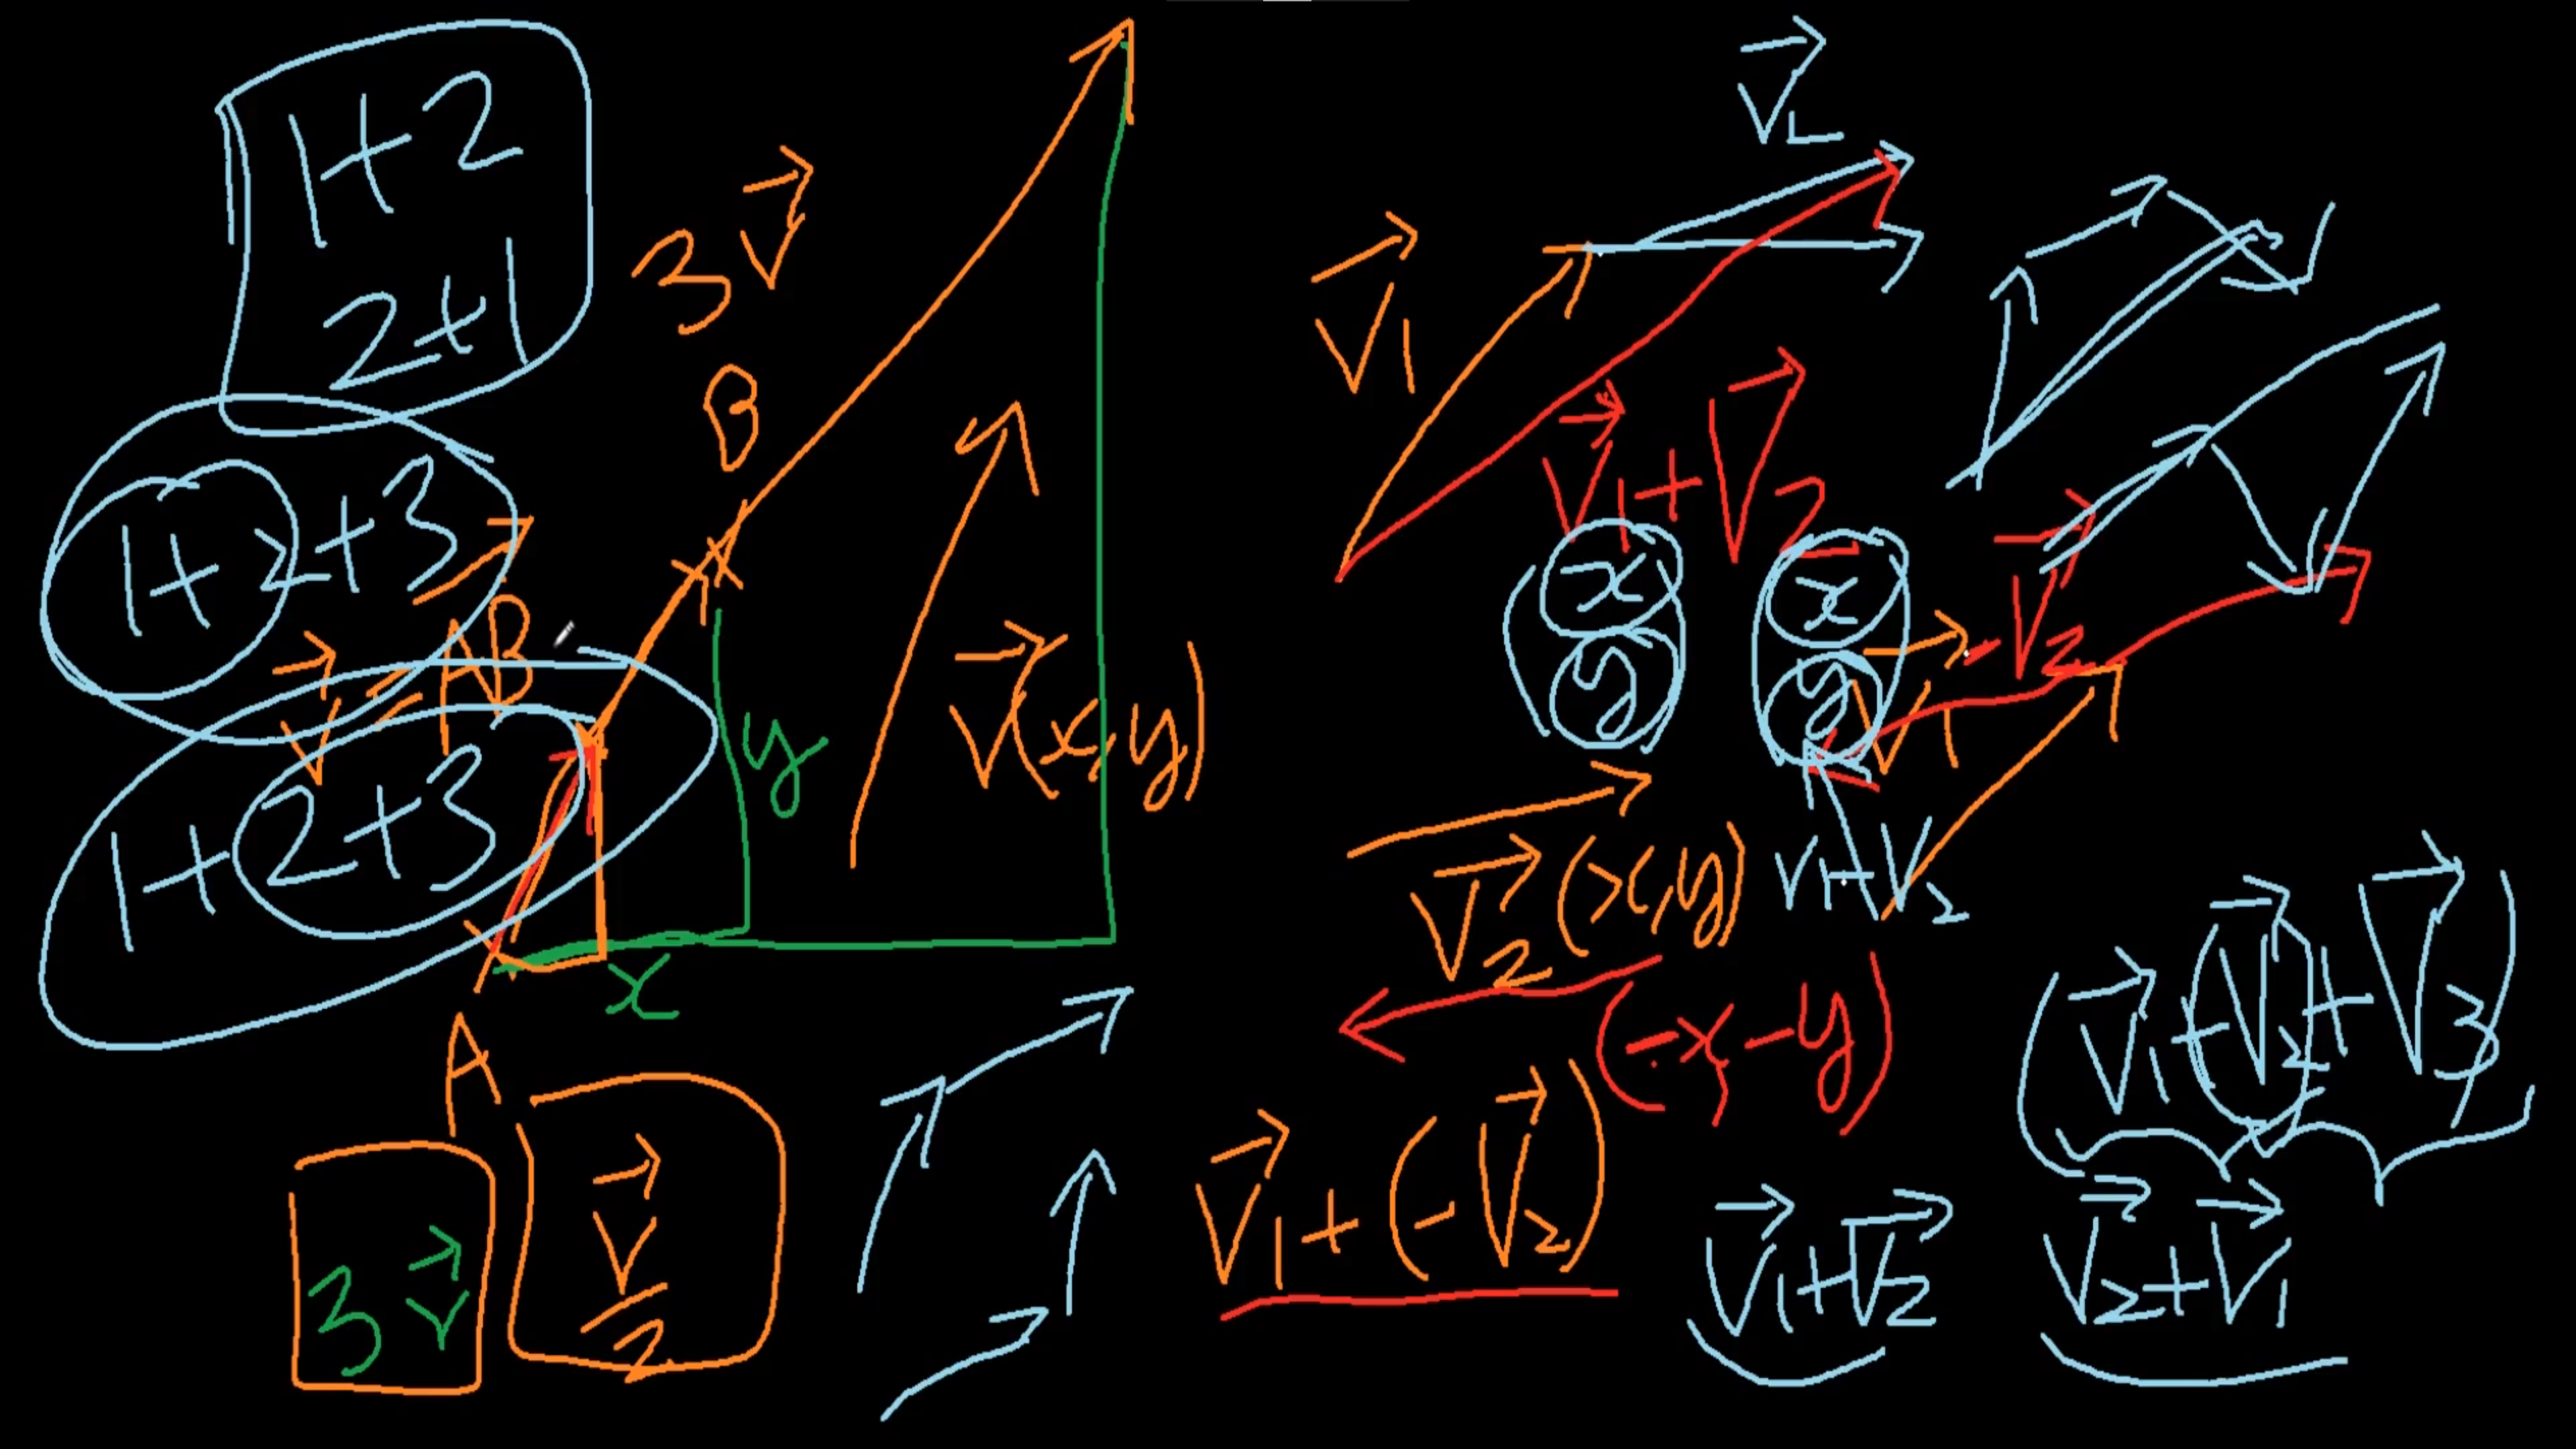 1+2
2+1
3 V⃗
B
1+2+3
V⃗ = AB⃗
1+2+3
y
x
A
V⃗(x,y)
3 V⃗
V⃗/2
V⃗₁
V⃗₁+V⃗₂
x x
y y
-V⃗₂
V⃗₁
V⃗₂(x,y)
V₁-V₂
(-x,-y)
V⃗₁+(-V⃗₂)
(V⃗₁+V⃗₂+V⃗₃)
V⃗₁+V⃗₂
V⃗₂+V⃗₁